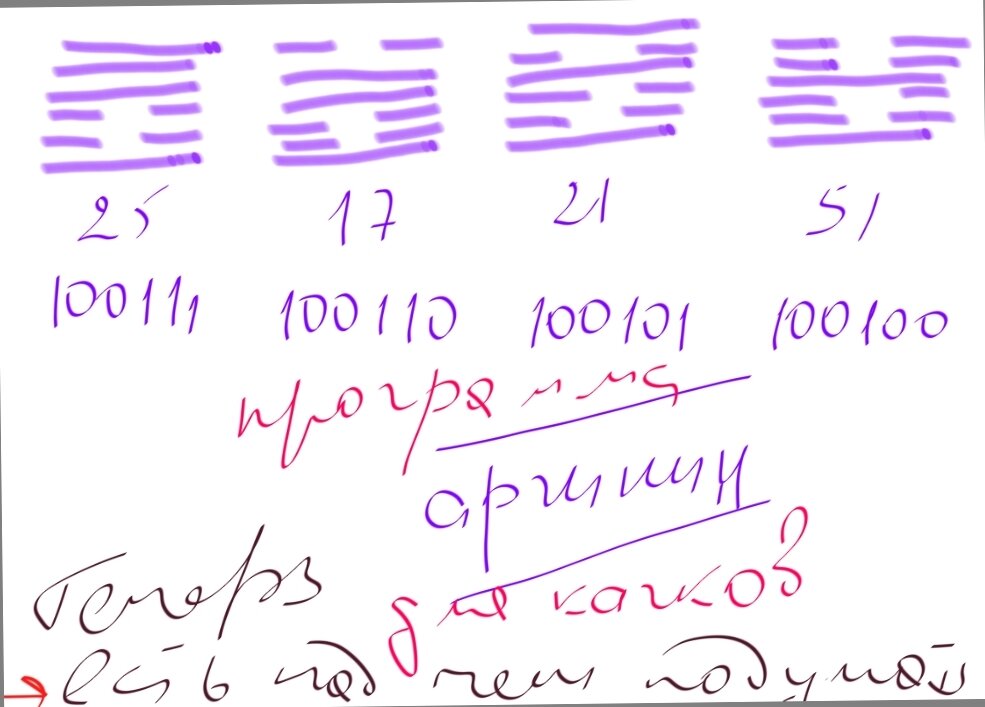 25 17 21 51
100111 100110 100101 100100
программа
аргинин
Теперь
для качков
есть над чем подумать